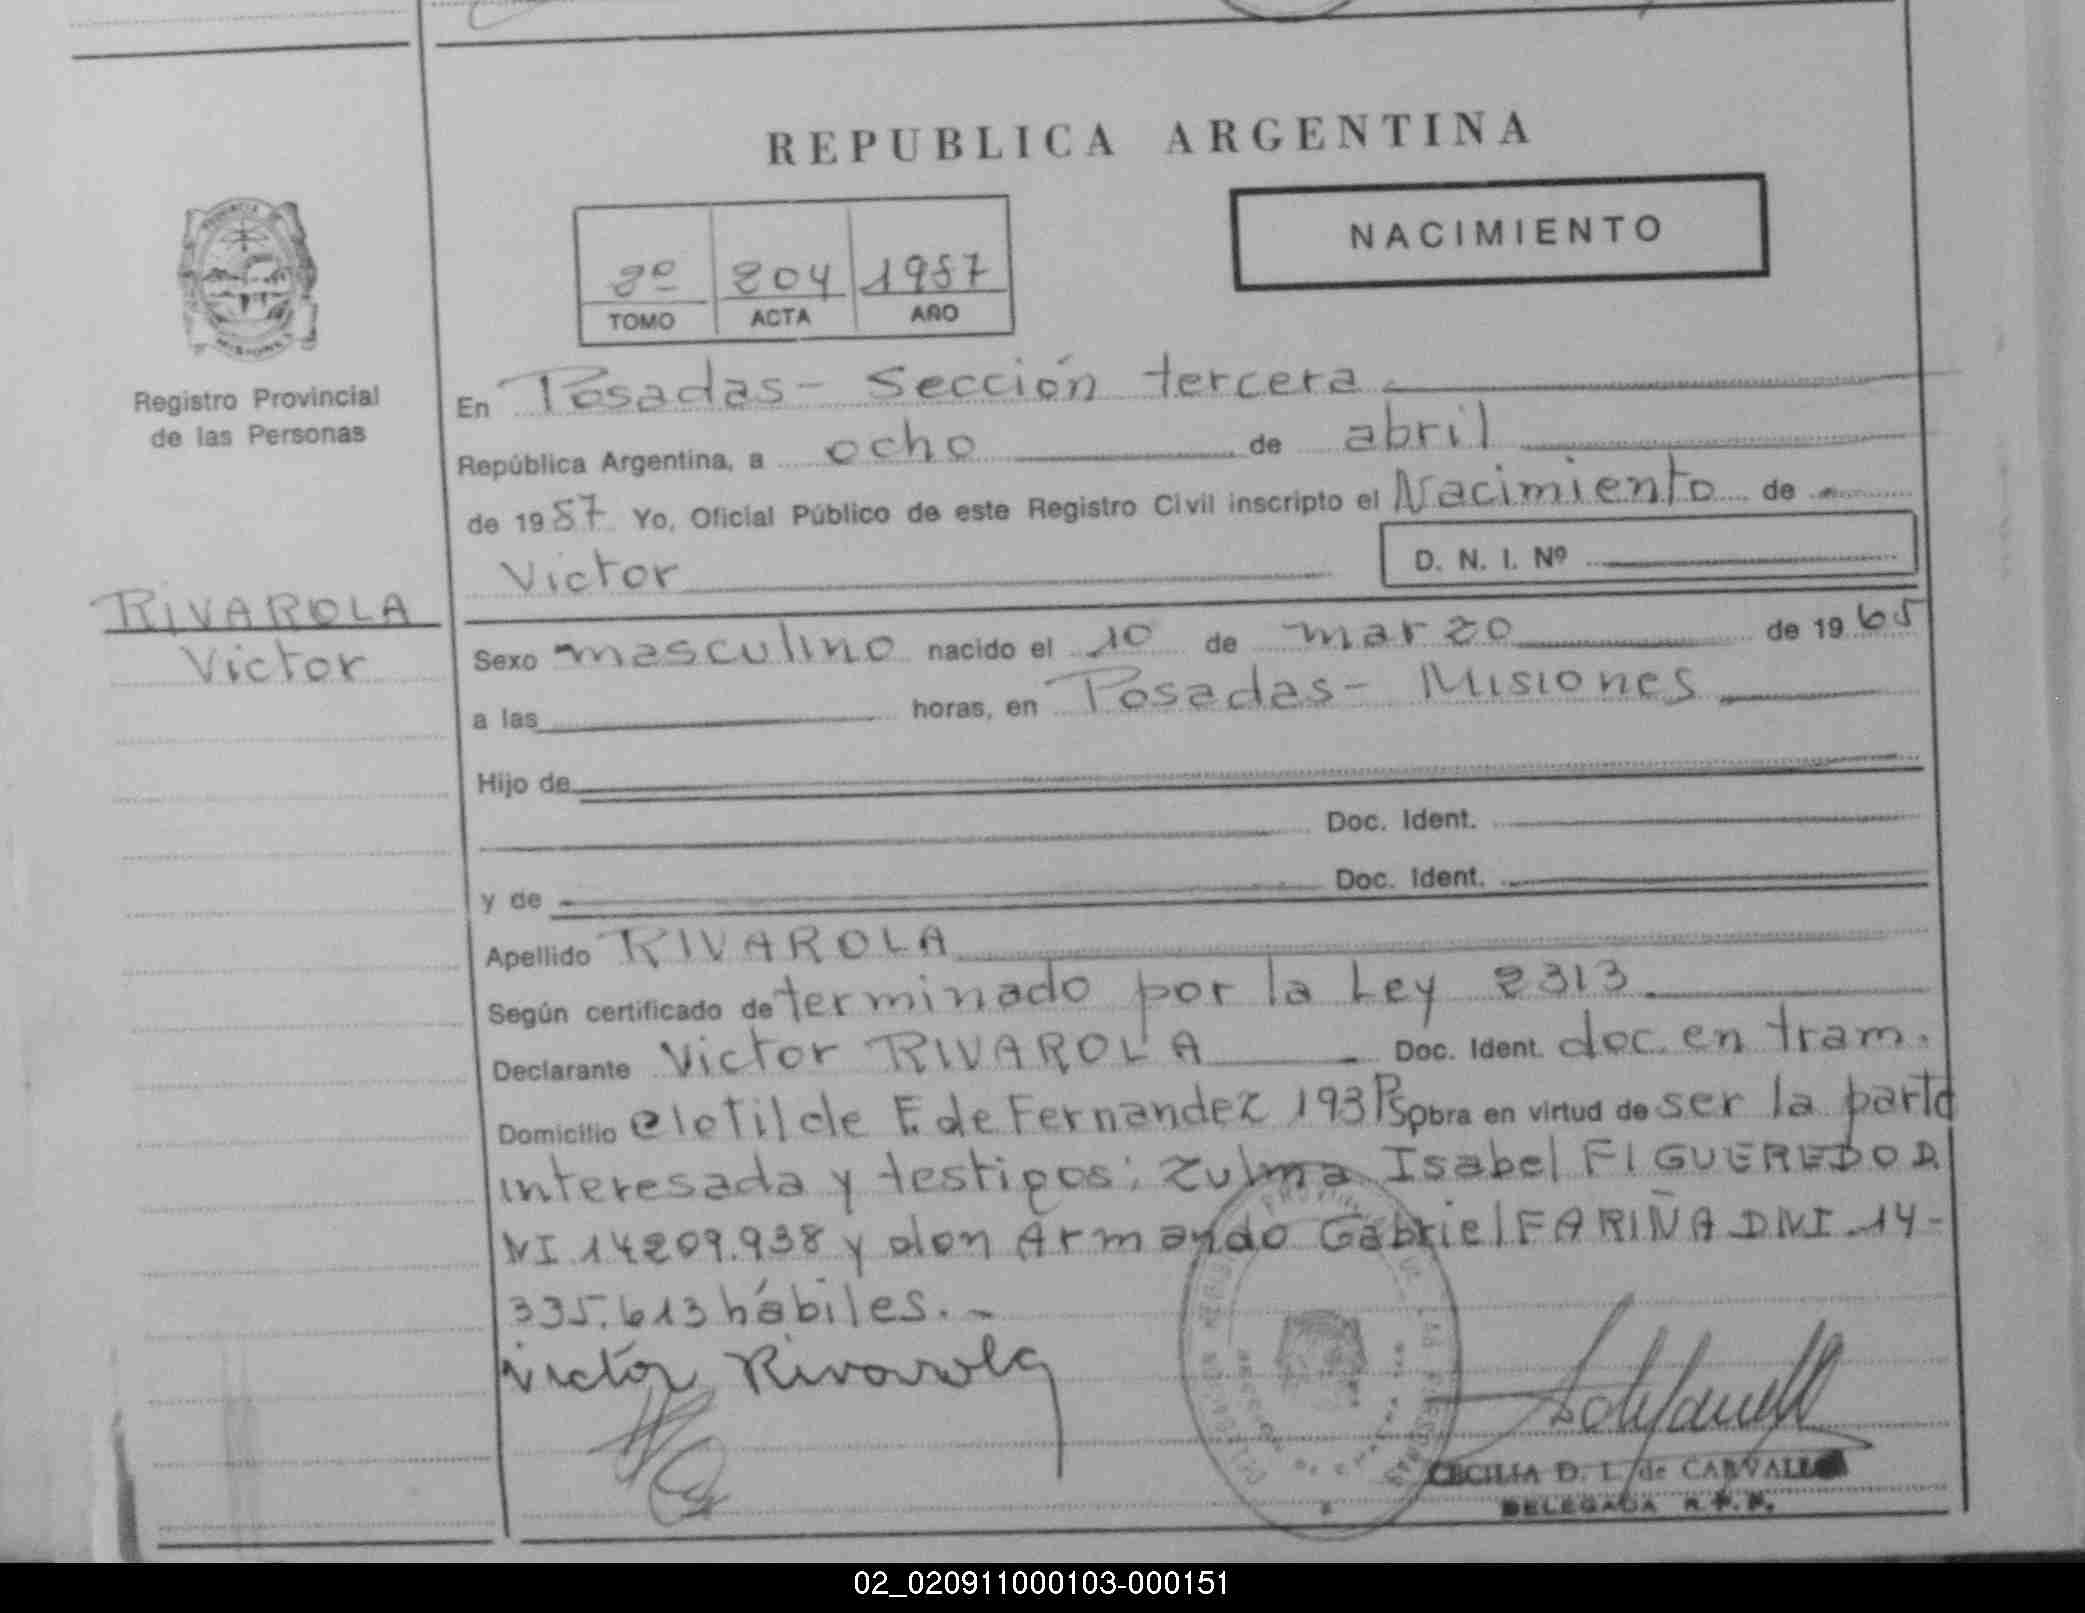 REPUBLICA ARGENTINA
NACIMIENTO
2º 204 1987
TOMO ACTA AÑO
Registro Provincial
de las Personas
RIVAROLA
Victor
En Posadas - Sección tercera
República Argentina, a ocho de abril
de 1987 Yo, Oficial Público de este Registro Civil inscripto el Nacimiento de
Victor D. N. I. Nº
Sexo masculino nacido el 10 de marzo de 1965
a las horas, en Posadas - Misiones
Hijo de
Doc. Ident.
y de Doc. Ident.
Apellido RIVAROLA
Según certificado determinado por la Ley 2313
Declarante Victor RIVAROLA Doc. Ident. doc. en tram.
Domicilio Clotilde F. de Fernandez 193 Psobra en virtud de ser la parte
interesada y testigos: Zulma Isabel FIGUEREDO D
NI 14209.938 y don Armando Gabriel FARIÑA DNI 14-
335.613 hábiles.-
Victor Rivarola
CECILIA D. L. de CARVALLO
DELEGADA R.P.P.
02_020911000103-000151